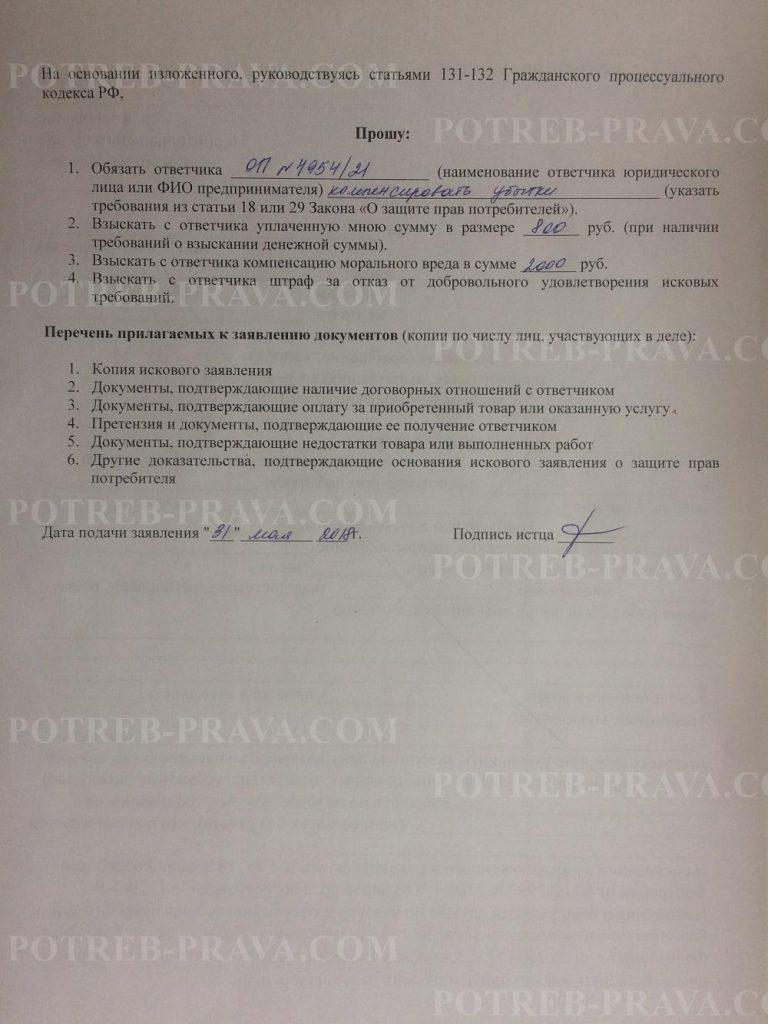 На основании изложенного, руководствуясь статьями 131-132 Гражданского процессуального
кодекса РФ,
Прошу:
1. Обязать ответчика ОП №4954/21 (наименование ответчика юридического
лица или ФИО предпринимателя) компенсировать убытки (указать
требования из статьи 18 или 29 Закона «О защите прав потребителей»).
2. Взыскать с ответчика уплаченную мною сумму в размере 800 руб. (при наличии
требований о взыскании денежной суммы).
3. Взыскать с ответчика компенсацию морального вреда в сумме 2000 руб.
4. Взыскать с ответчика штраф за отказ от добровольного удовлетворения исковых
требований.
Перечень прилагаемых к заявлению документов (копии по числу лиц, участвующих в деле):
1. Копия искового заявления
2. Документы, подтверждающие наличие договорных отношений с ответчиком
3. Документы, подтверждающие оплату за приобретенный товар или оказанную услугу
4. Претензия и документы, подтверждающие ее получение ответчиком
5. Документы, подтверждающие недостатки товара или выполненных работ
6. Другие доказательства, подтверждающие основания искового заявления о защите прав
потребителя
Дата подачи заявления "31" мая 2018г. Подпись истца
POTREB-PRAVA.COM
POTREB-PRAVA.CO
POTREB-PRAVA.COM
POTREB-PRAVA.CO
POTREB-PRAVA.COM
POTREB-PRAVA.CO
POTREB-PRAVA.COM
POTREB-PRAVA.CO
POTREB-PRAVA.COM
POTREB-PRAVA.CO